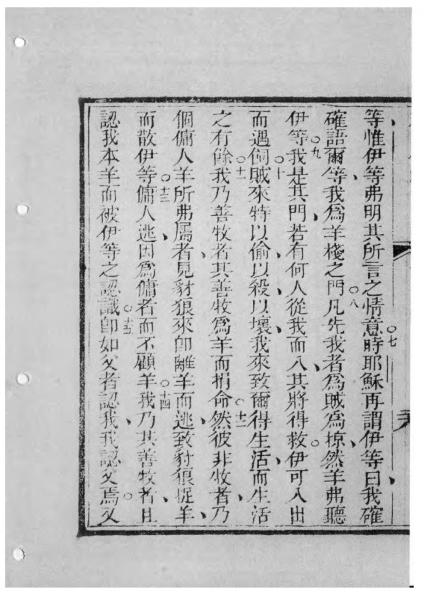 等惟伊等弗明其所言之情意○七時耶穌再謂伊等曰我確
確語爾等我爲羊棧之門○八凡先我者爲賊爲掠然羊弗聽
伊等○九我是其門若有何人從我而入其將得救伊可入出
而遇伺○十賊來特以偷以殺以壞我來致爾得生活而生活
之有餘○十一我乃善牧者其善牧爲羊而捐命○十二然彼非牧者乃
個傭人羊所弗屬者見豺狼來卽離羊而逃致豺狼捉羊
而散伊等○十三傭人逃因爲傭者而不顧羊○十四我乃其善牧者且
認我本羊而被伊等之認識○十五卽如父者認我我認父焉父